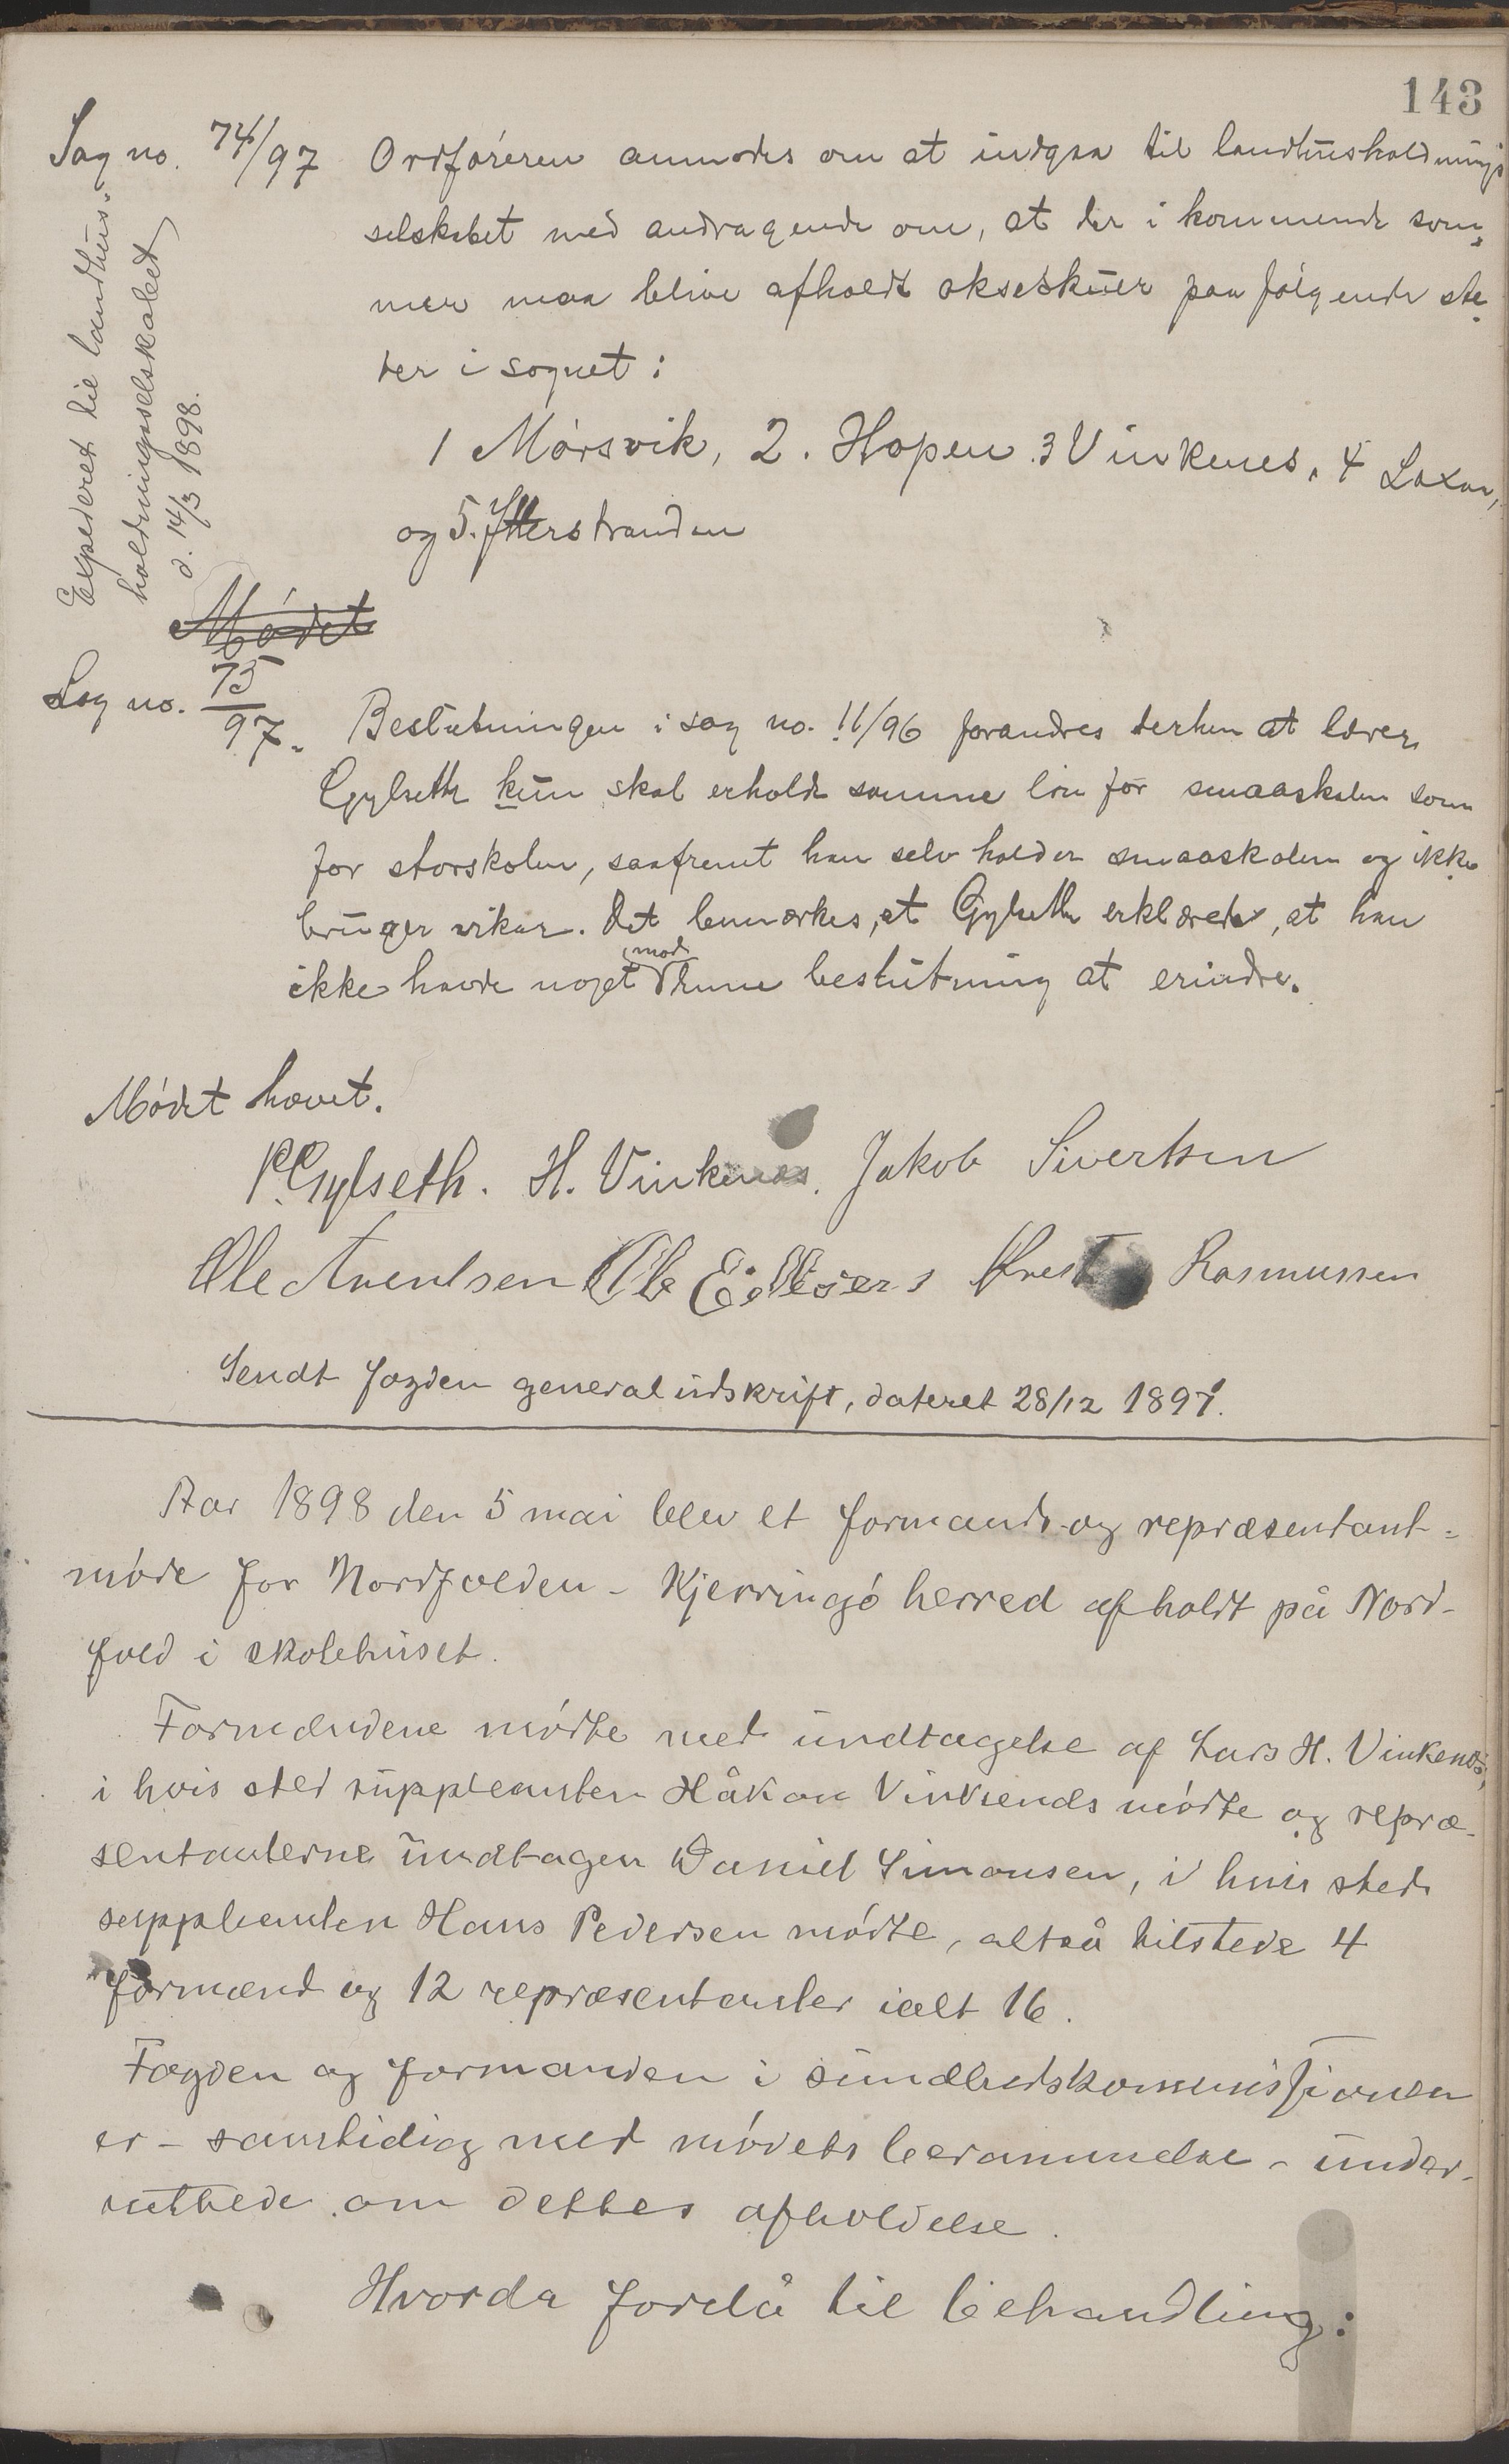 143
Sag no. 74/97 Ordføreren anmodes om at indgaa til landhusholdnings
selskabet med andragende om, at der i kommende som,
mer maa blive afholdt okseskuer paa følgende ste,
der i sognet:
1 Mørsvik, 2. Hopen 3 Vinkenes, 4 Laxaa,
og 5. Ytterstranden
Expederet til landhus-
holdningsselskabet
d. 14/3 1898.
Mødet
Sag no. 75/97. Beslutningen i sag no. 11/96 forandres derhen at lærer
Gylseth kun skal erholde samme løn for smaaskolen som
for storskolen, saafremt han selv holder smaaskolen og ikke
bruger vikar. Det bemærkes, at Gylseth erklærede, at han
ikke havde noget mod denne beslutning at erindre.
Mødet hævet.
P. Gylseth. H. Vinkenes. Jakob Sivertsen
Ole Arentsen Ole Rasmussen
Sendt fogden generaludskrift, dateret 28/12 1897.
Aar 1898 den 5 mai blev et formands- og repræsentant-
møde for Nordfolden - Kjerringø herred afholdt på Nord-
fold i skolehuset.
Formændene mødte med undtagelse af Lars H. Vinkenes,
i hvis sted suppleanten Håkon Vinkenes mødte og repræ-
sentanterne undtagen Daniel Simonsen, i hvis sted
suppleanten Hans Pedersen mødte, altså tilstede 4
formænd og 12 repræsentanter ialt 16.
Fogden og formanden i sundhedskommissionen
er - samtidig med mødets berammelse - under-
rettede om dettes afholdelse.
Hvorda forelå til behandling: